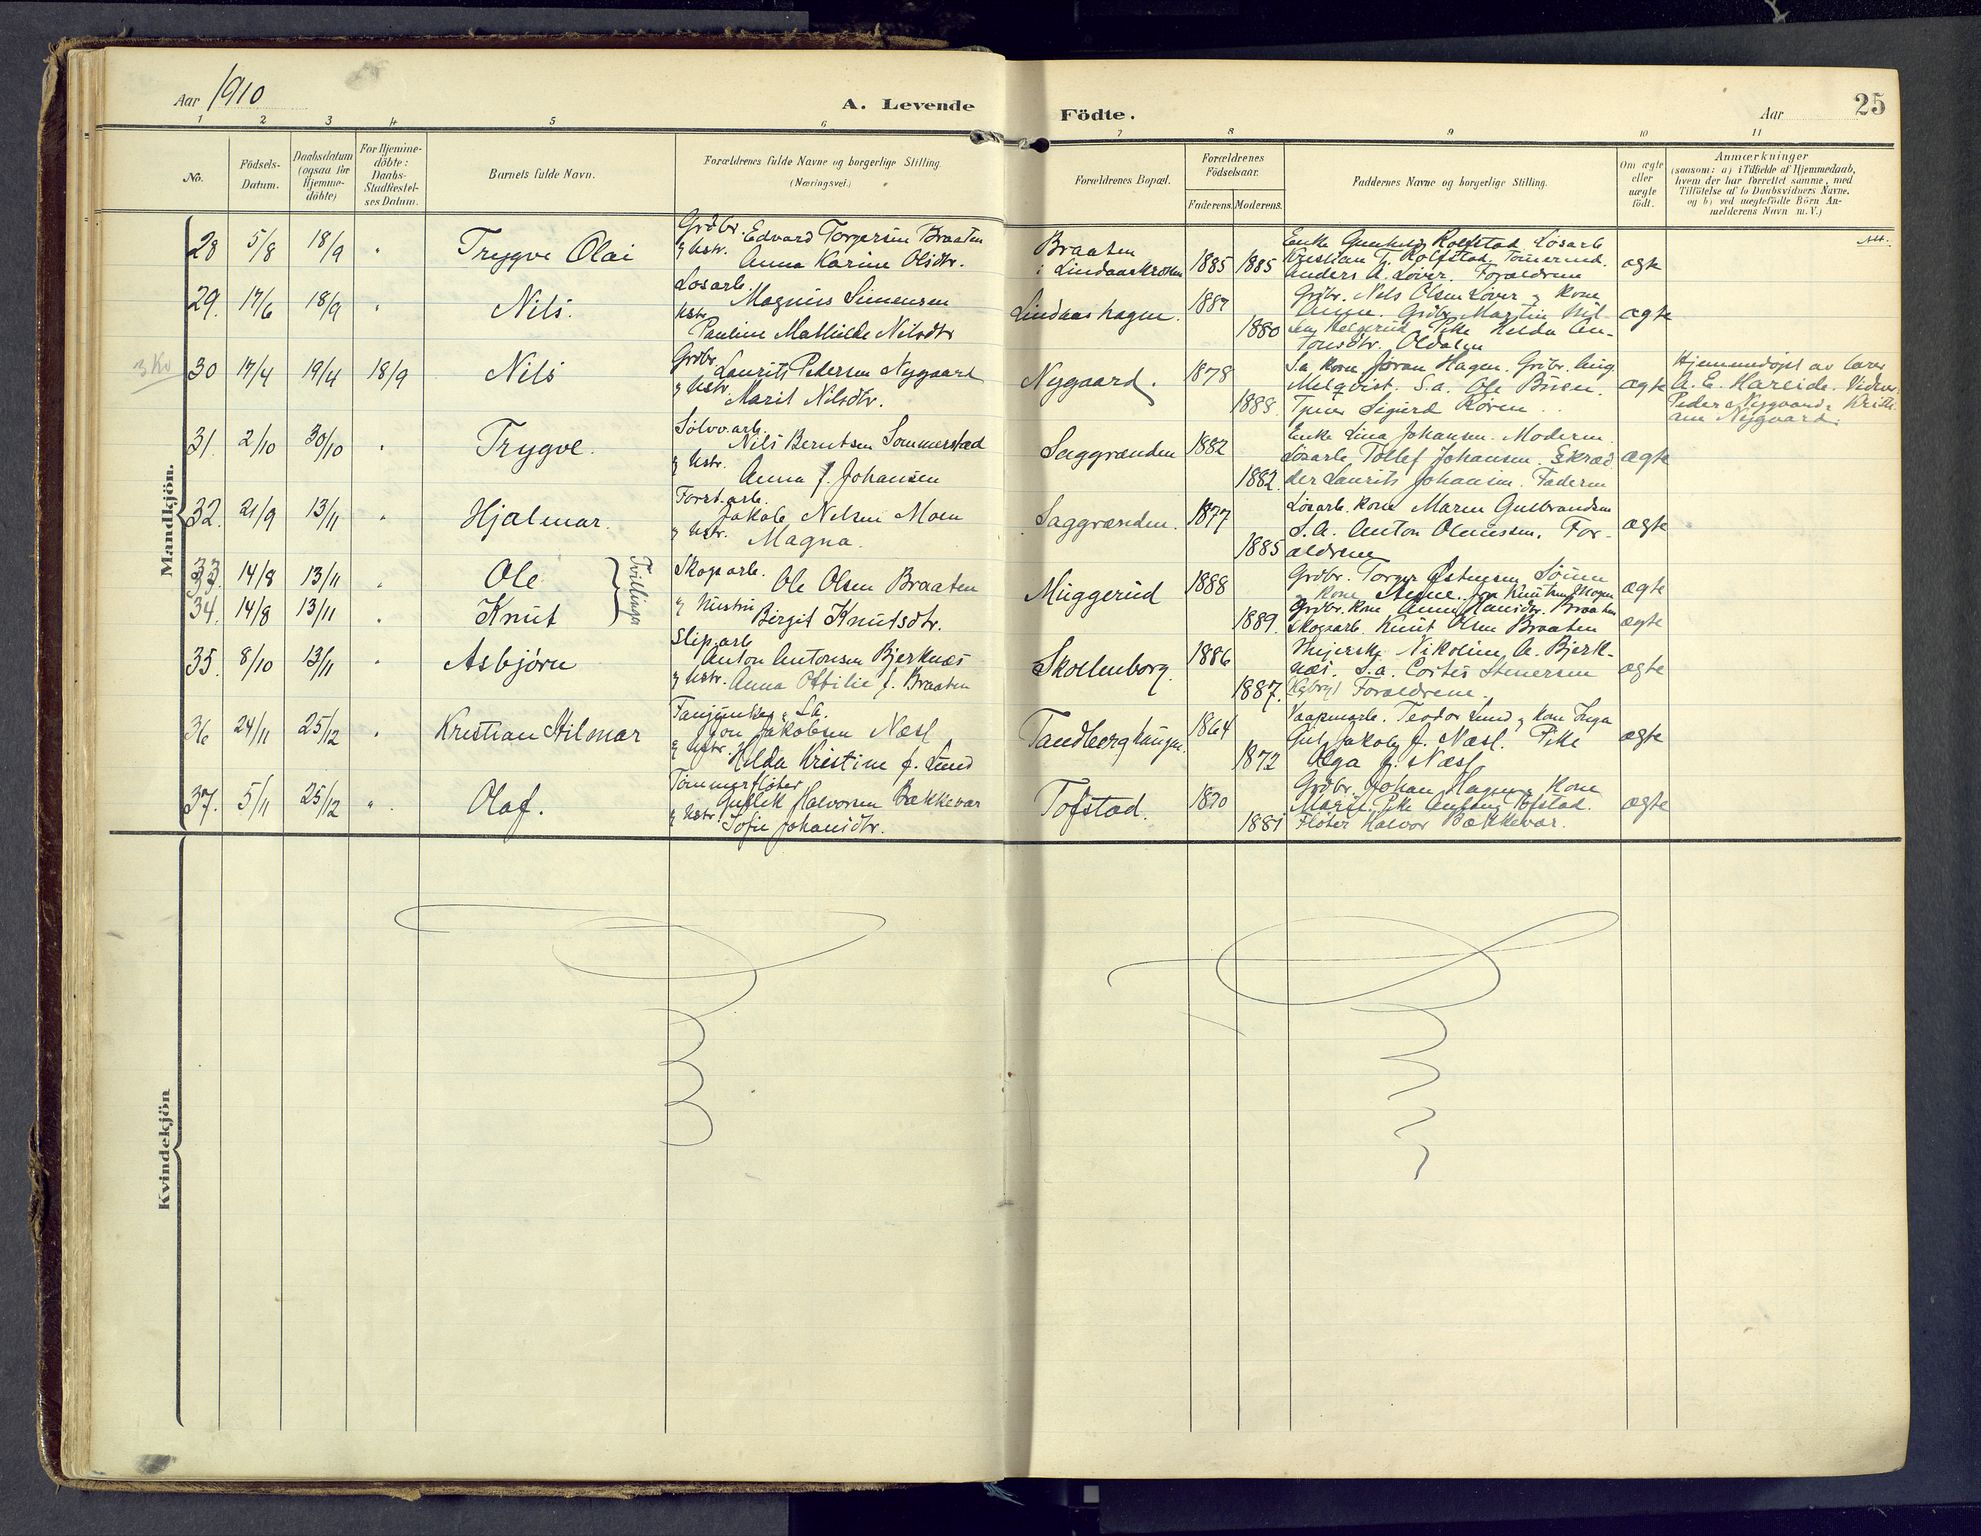 Aar 1910
A. Levende
Födte.
Aar
25
1 2 3 4 5 6 7 8 9 10 11
No.
Födsels-
Datum.
Daabsdatum
(ogsaa for
Hjemme-
döbte)
For Hjemme-
döbte:
Daabs-
Stadfæstel-
ses Datum.
Barnets fulde Navn.
Forældrenes fulde Navne og borgerlige Stilling
(Næringsvei.)
Forældrenes Bopæl.
Forældrenes
Födselsaar.
Faderens. Moderens.
Faddernes Navne og borgerlige Stilling.
Om ægte
eller
uægte
födt.
Anmærkninger
(saasom: a) i Tilfælde af Hjemmedaab,
hvem der har forrettet samme, med
Tilföielse af to Daabsvidners Navne,
og b) ved uægtefödte Börn An-
melderens Navn m. V.)
Mandkjön.
28 5/8 18/9 " Trygve Olai
Grdbr. Edvard Torgersen Braaten
& hstr. Anna Karine Olsdtr.
Braaten
i Lindaaskroken
1885 1885
Enke Gunhild Rolfstad. Løsarb.
Kristian T. Rolfstad. Tømerm.
Anders A. Løver. Forældrene
ægte
29. 17/6 18/9 " Nils.
Løsarb.
Magnus Simensen
hstr.
Pauline Mathilde Nilsdtr
Lindaashagen.
1887
1880
Grdbr. Nils Olsen Løver & kone
Anne. Grdbr. Martin Nil-
sen Helgerud. Pike Helda An-
tonsdtr. Oldalen
ægte
3 Kv
30 17/4 19/4 18/9 Nils
Grdbr.
Laurits Pedersen Nygaard
& hstr.
Marit Nilsdtr.
Nygaard.
1878
1888
S.a. kone Jøran Hagen. Grdbr. Aug.
Melqvist. S.a. Ole Buen.
Sigurd
ægte
Hjemmedøpt av lærer
A. E. Hareide. Vidner:
Peder Nygaard & Kristi-
ane Nygaard.
31. 2/10 30/10 " Trygve.
Sølvv.arb.
Nils Berntsen Sommerstad
& hstr.
Anna f. Johansen
Saggrænden
1882
1882.
Enke Lina Johansen. Moderen.
Løsarb. Tollef Johansen. Skræd
der Laurits Johansen. Faderen
ægte
32. 21/9 13/11 " Hjalmar.
Forst.arb.
Jakob Nelsen Moen
& hstr.
Magna.
Saggrænden.
1877
1885
Løsarb. kone Maren Gulbrandsen
S.A. Anton Olaussen. For-
ældrene
ægte
33 14/8 13/11 " Ole
34. 14/8 13/11 " Knut
Tvillinger
Skogsarb.
Ole Olsen Braaten
& hustru
Birgit Knutsdtr.
Muggerud
1888
1889.
Grdbr. Torger Østensen
kone
Grdbr. kone Anne Hansdtr. Braaten
Skogsarb. Knut Olsen Braaten
ægte
ægte
35. 8/10 13/11 " Asbjørn
Sliparb
Anton Antonsen Bjerknæs
& hstr. Anna Othilie f. Braaten
Skollenborg.
1886
1887.
Meierske Nikoline A. Bjerk-
næs. S.a. Stenersen
Forældrene.
ægte
36 24/11 25/12 " Kristian Hilmar
Jon Jakobsen Næsl
& hstr.
Hilda Kristine f. Lund
Tandberghaugen.
1864
1872
Vaapenarb. Teodor Lund & kone Inga
Gul. Jakobs f. Næsl. Pike
Olga J. Næsl
ægte
37. 5/11 25/12 " Olaf.
Tømmerfløter
Gullik Halvorsen Bækkevar
& hstr. Sofie Johansdtr.
Tofstad.
1870
1881
Grdbr. Johan Hagen & kone
Marie. Pike Tofstad.
Fløter Halvor Bækkevar.
ægte
Kvindekjön